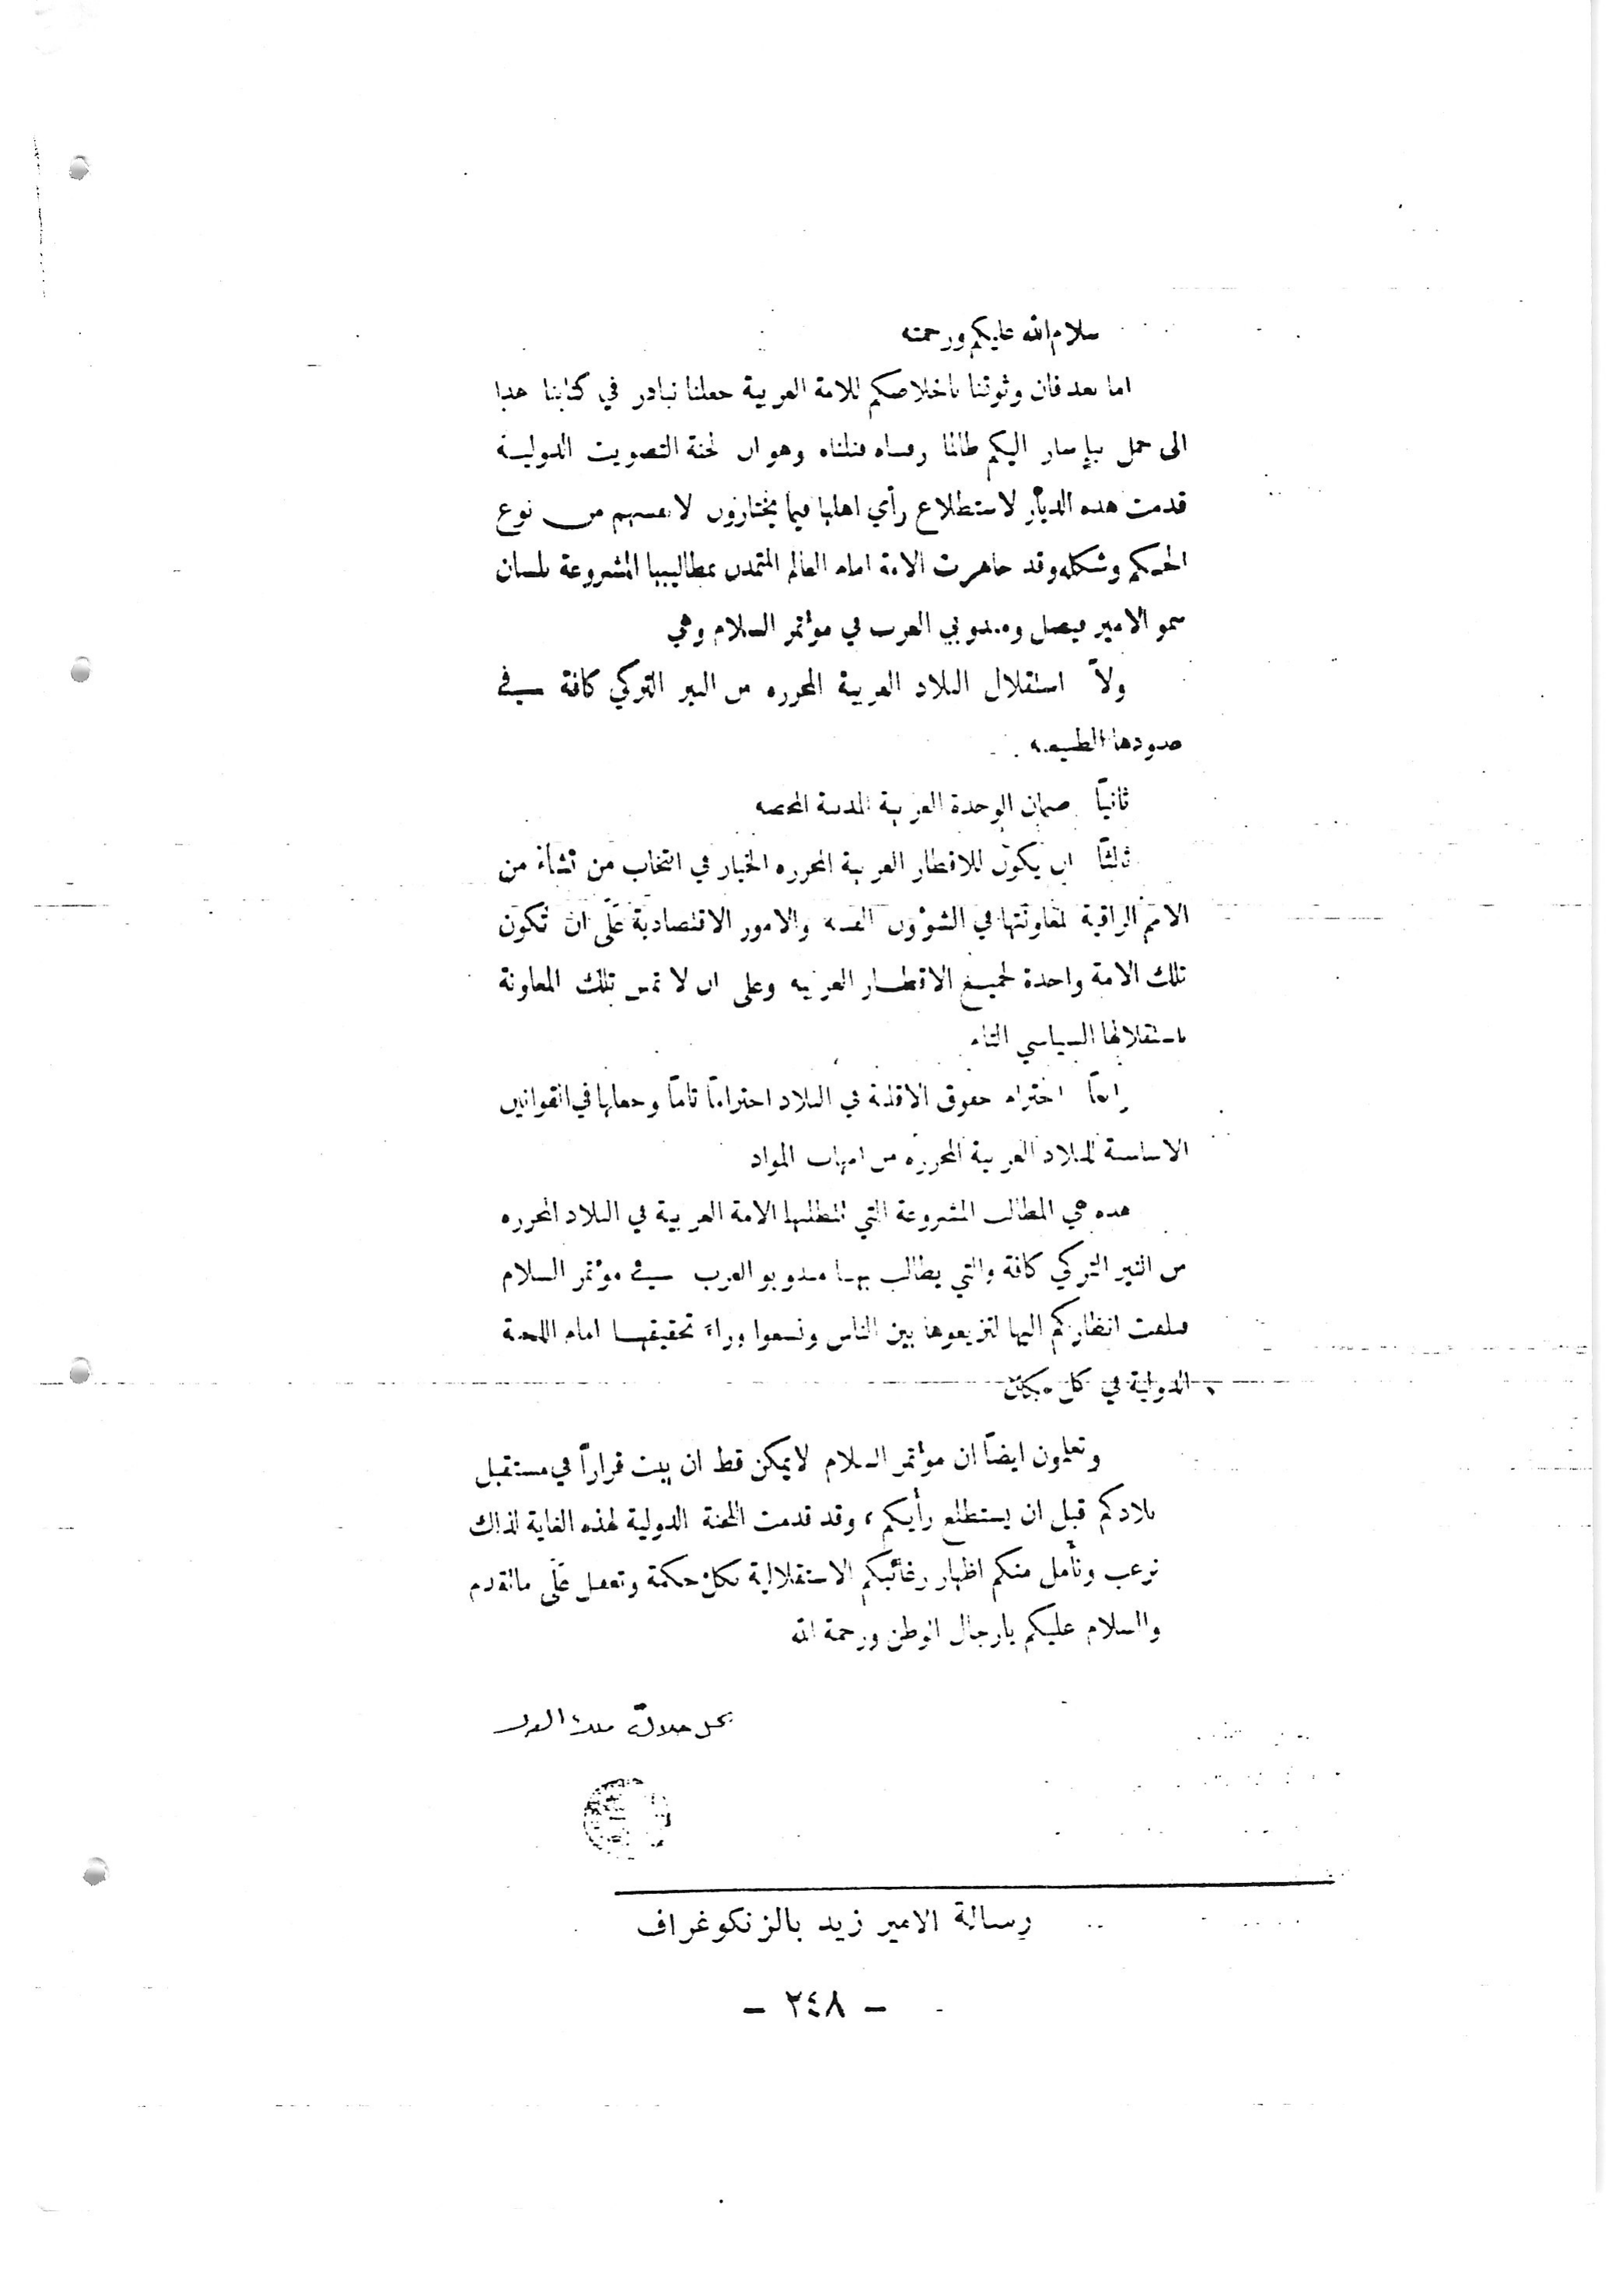 سلام الله عليكم ورحمته
اما بعد فان وثوقنا باخلاصكم للامة العربية جعلنا نبادر في كتابنا هذا
الى حمل اليكم طالما وهو ان لجنة التصويت الدولية
قدمت هذه الديار لاستطلاع رأي اهلها فيما يختارون لانفسهم من نوع
الحكم وشكله وقد جاهرت الامة امام العالم المتمدن بمطاليبها المشروعة بلسان
سمو الامير فيصل ومندوبي العرب في مؤتمر السلام وهي
ولاً استقلال البلاد العربية المحرره من النير التركي كافة في
حدودها الطبيعيه
ثانياً ضمان الوحدة العربية
ثالثاً ان يكون للاقطار العربية المحرره الخيار في انتخاب من تشاء من
الامم الراقية لمعاونتها في الشؤون الفنيه والامور الاقتصادية على ان تكون
تلك الامة واحدة لجميع الاقطار العربيه وعلى ان لا تمس تلك المعاونة
باستقلالها السياسي التام
رابعاً احترام حقوق الاقلية في البلاد احتراماً تاماً وجعلها في القوانين
الاساسية للبلاد العربية المحرره من امهات المواد
هذه هي المطالب المشروعة التي تتطلبها الامة العربية في البلاد المحرره
من النير التركي كافة والتي يطالب بها مندوبو العرب في مؤتمر السلام
فنلفت انظاركم اليها لتزيعوها بين الناس وتسعوا وراء تحقيقها امام اللجنة
الدولية في كل مكان
وتعلمون ايضاً ان مؤتمر السلام لا يمكن قط ان يبت قراراً في مستقبل
بلادكم قبل ان يستطلع رأيكم ، وقد قدمت اللجنة الدولية لهذه الغاية لذلك
نرغب ونأمل منكم اظهار رغائبكم الاستقلالية بكل حكمة وتعقل على ما تقدم
والسلام عليكم يا رجال الوطن ورحمة الله
نجل جلالة ملك العرب
رسالة الامير زيد بالزنكوغراف
- ٢٤٨ -